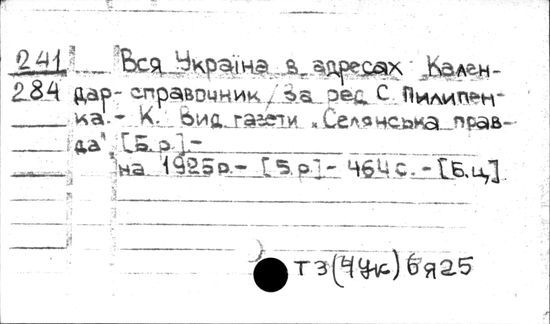 241 Вся Україна в адресах: Кален-
284 дар-справочник / За ред. С. Пилипен-
ка. - К. Вид. газети „Селянська прав-
да", [Б.р.] -
на 1925 р. - [Б.р.] - 464 с. - [Б.ц.]
Т3(4Ук)6я25